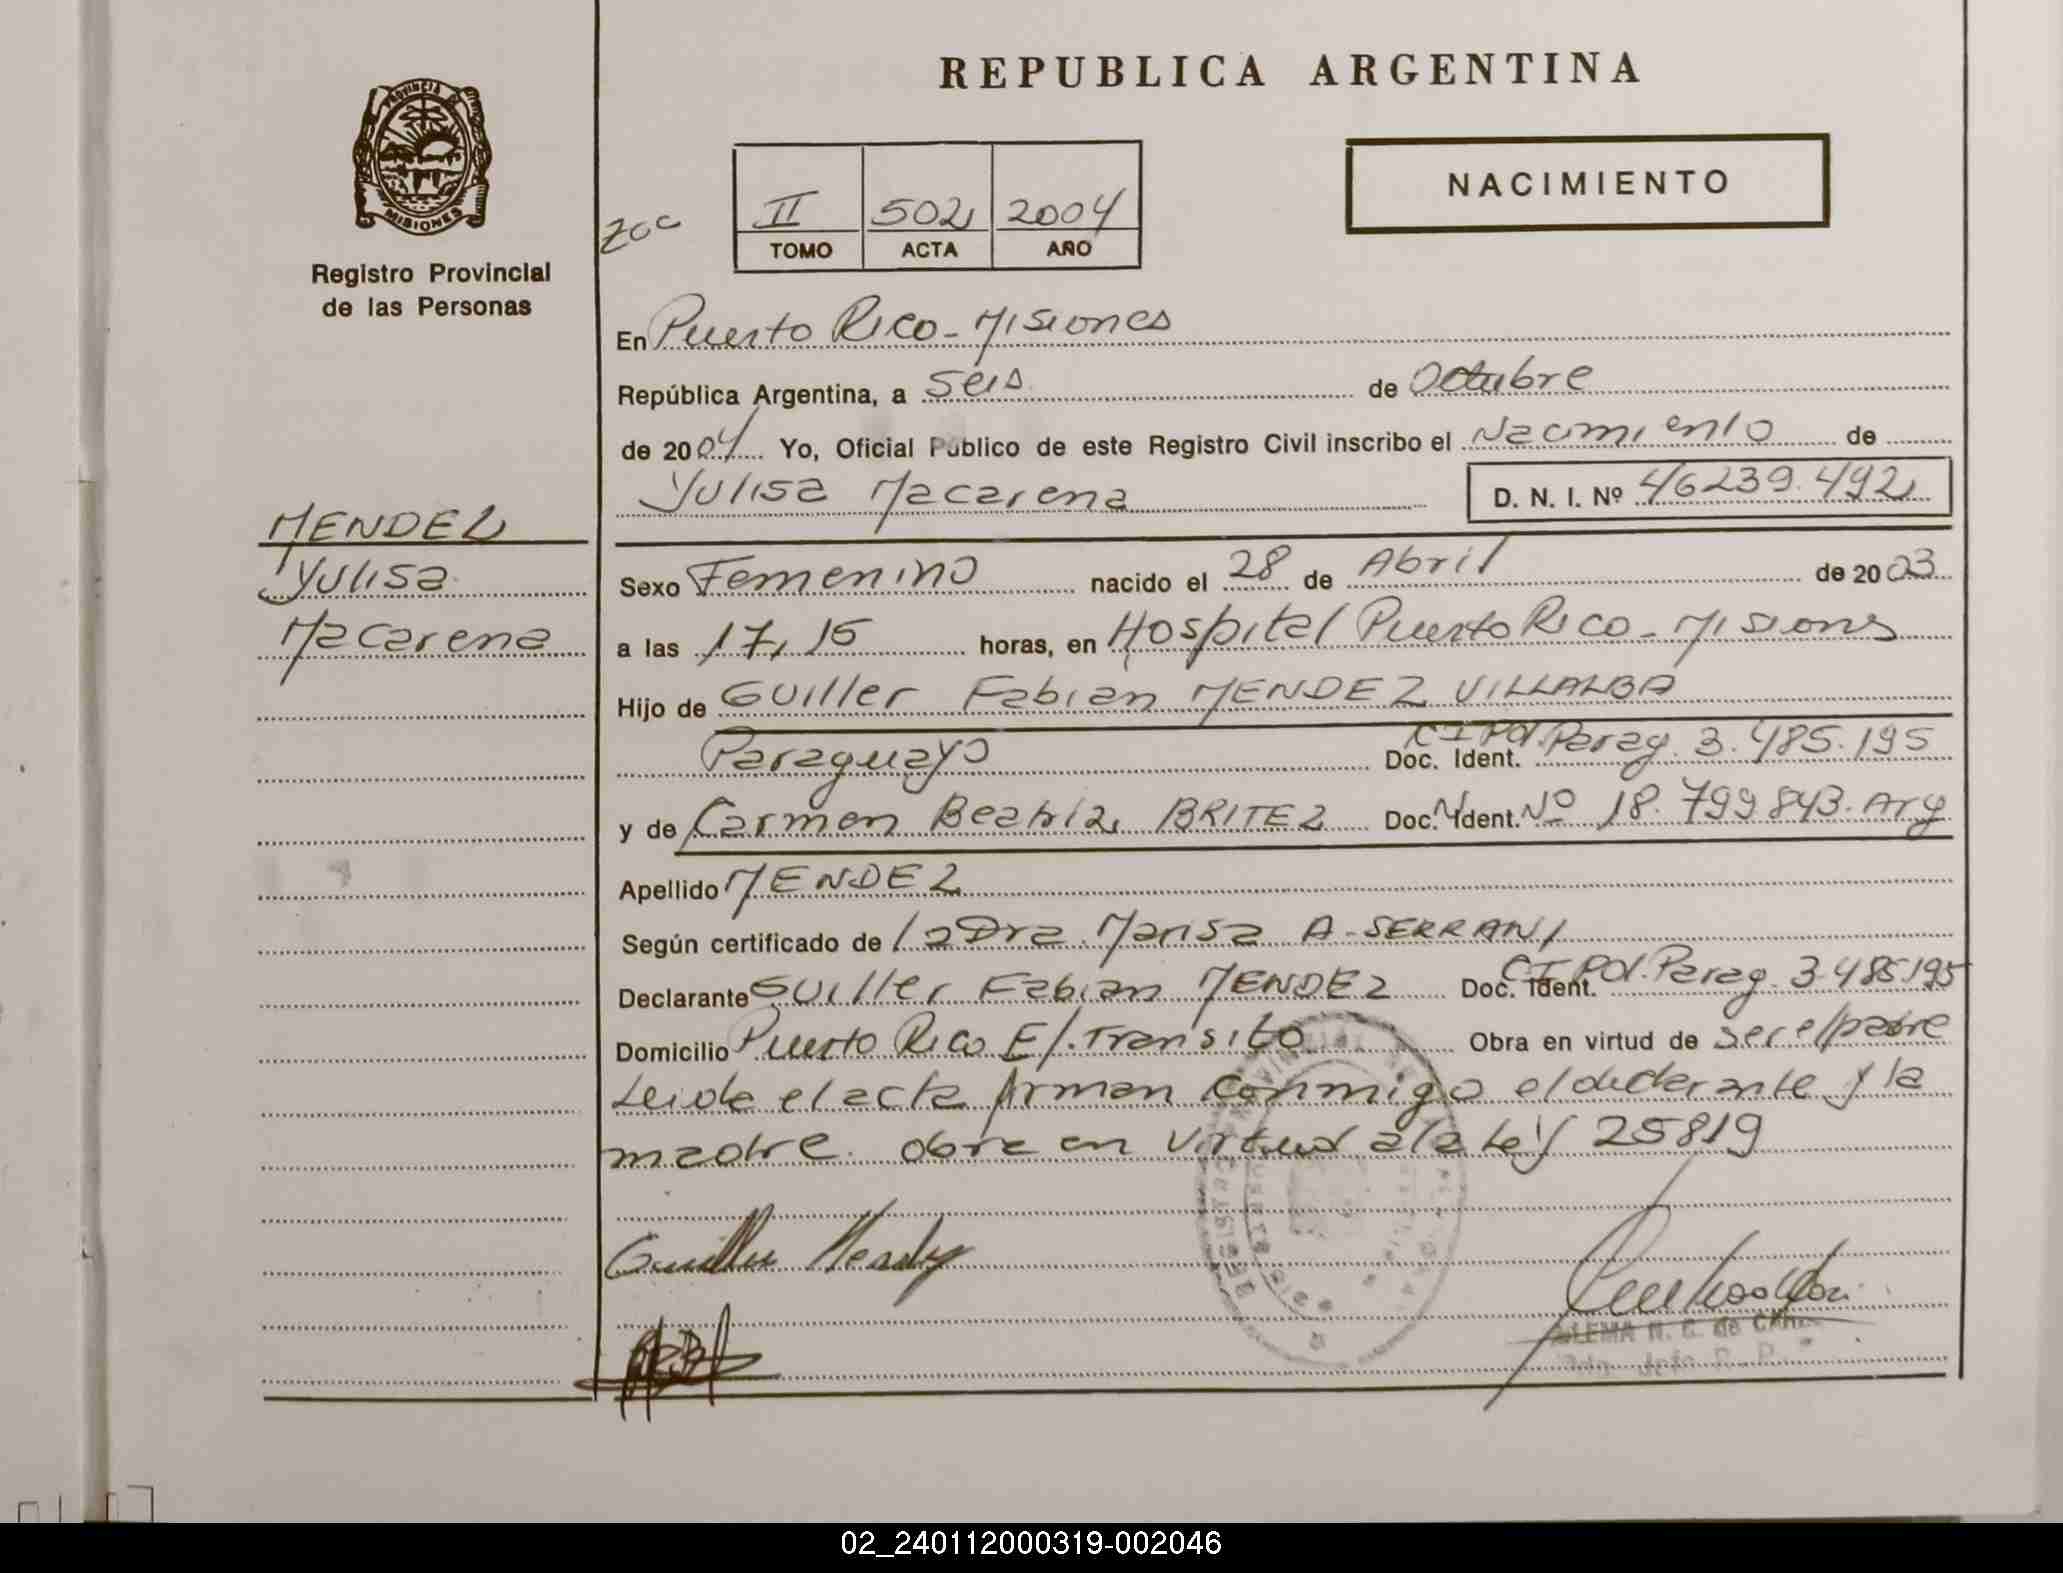 REPUBLICA ARGENTINA
PROVINCIA DE MISIONES
Registro Provincial
de las Personas
NACIMIENTO
II 502 2004
TOMO ACTA AÑO
En Puerto Rico - Misiones
República Argentina, a seis de Octubre
de 2004 Yo, Oficial Público de este Registro Civil inscribo el Nacimiento de
Yulisa Macarena D. N. I. Nº 46239.492
MENDEZ
Yulisa
Macarena
Sexo Femenino nacido el 28 de Abril de 2003
a las 17,15 horas, en Hospital Puerto Rico - Misiones
Hijo de Guiller Fabian MENDEZ VILLALBA
Paraguayo Doc. Ident. CI Pol. Parag. 3.485.195
y de Carmen Beatriz BRITEZ Doc. Ident. Nº 18.799843. Arg
Apellido MENDEZ
Según certificado de la Dra Marisa A. SERRANI
Declarante Guiller Fabian MENDEZ Doc. Ident. CI Pol. Parag. 3.485195
Domicilio Puerto Rico E/. Transito Obra en virtud de ser el padre
Leida el acta firman conmigo el declarante y la
madre. obra en virtud a la Ley 25819
Guiller Mendez
02_240112000319-002046